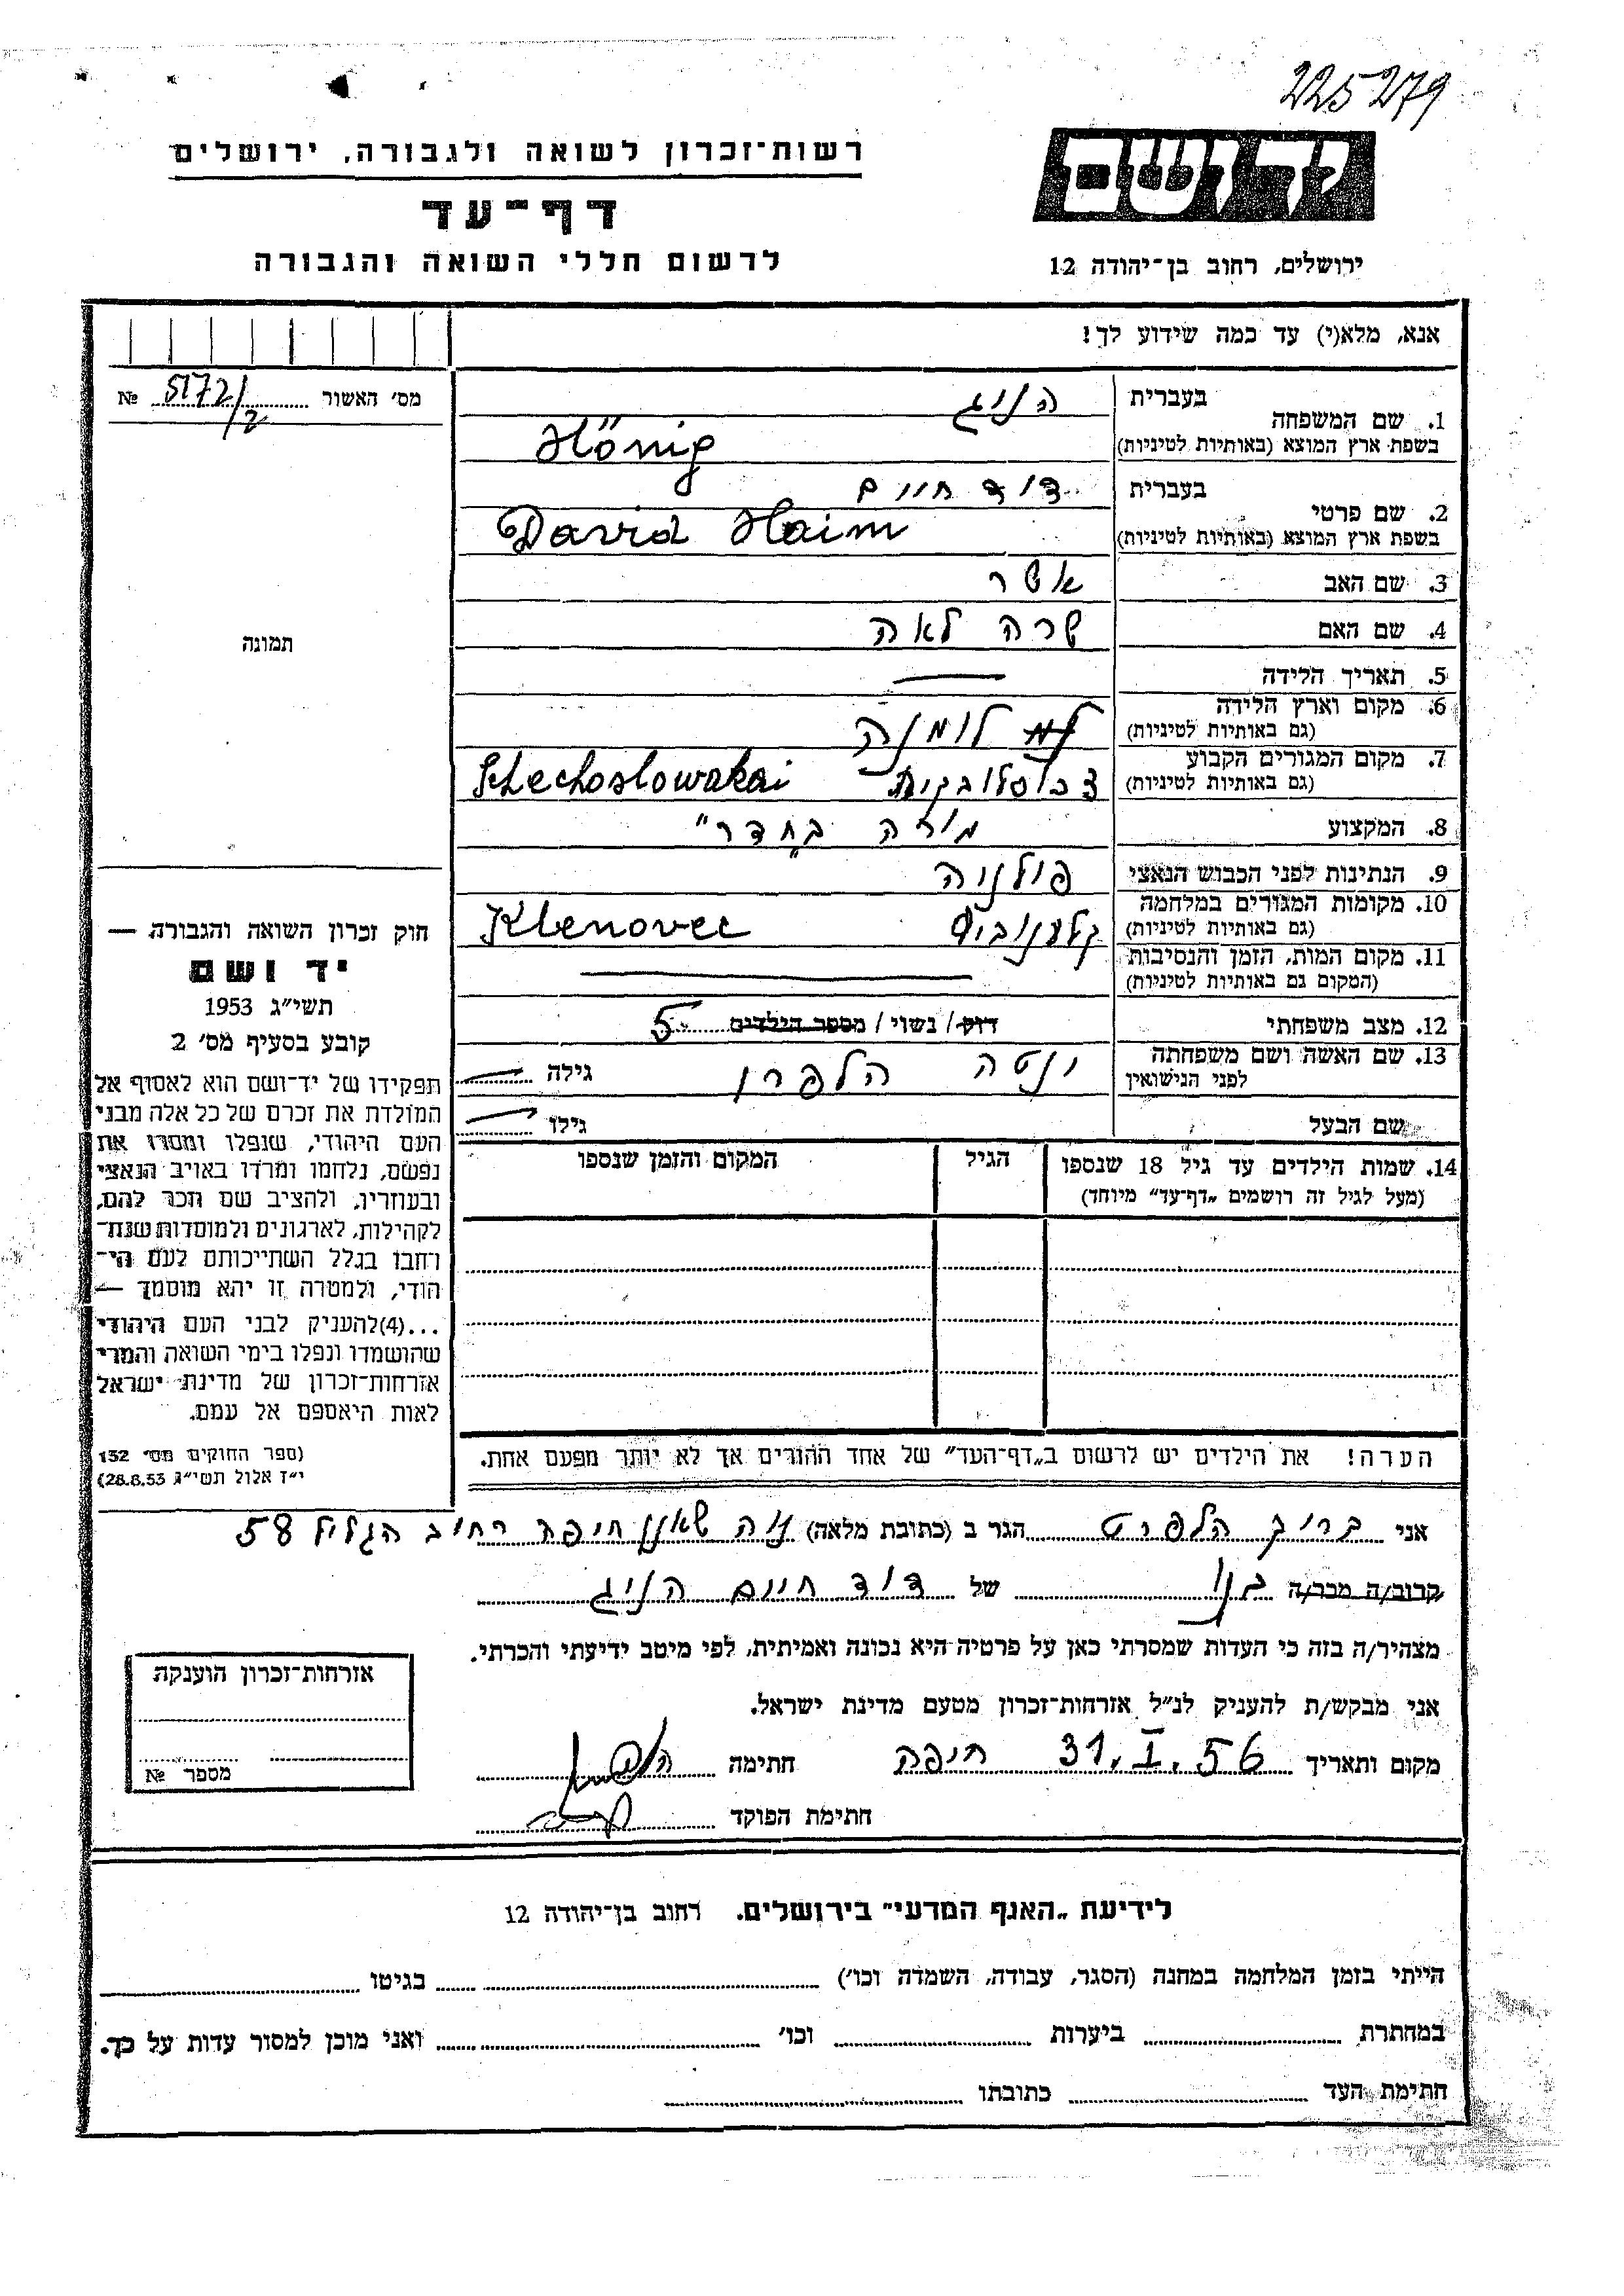 225279
רשות־זכרון לשואה ולגבורה, ירושלים
יד ושם
דף־עד
לרשום חללי השואה והגבורה
ירושלים, רחוב בן־יהודה 12
אנא, מלא(י) עד כמה שידוע לך!
מס' האשור 5172/2 №
1. שם המשפחה
בעברית הניג
בשפת ארץ המוצא (באותיות לטיניות) Hönig
2. שם פרטי
בעברית דוד חיים
בשפת ארץ המוצא (באותיות לטיניות) David Haim
3. שם האב אשר
4. שם האם שרה לאה
תמונה
5. תאריך הלידה —
6. מקום וארץ הלידה
(גם באותיות לטיניות) לומנה
7. מקום המגורים הקבוע
(גם באותיות לטיניות) צכוסלובקית Schechoslowakai
8. המקצוע מורה ב"חדר"
9. הנתינות לפני הכבוש הנאצי פולניה
10. מקומות המגורים במלחמה
(גם באותיות לטיניות) קלענוביץ Klenovec
11. מקום המות, הזמן והנסיבות
(המקום גם באותיות לטיניות)
12. מצב משפחתי רווק / נשוי / מספר הילדים 5
13. שם האשה ושם משפחתה
לפני הנישואין יטה הלפרן גילה
שם הבעל גילו
14. שמות הילדים עד גיל 18 שנספו הגיל המקום והזמן שנספו
(מעל לגיל זה רושמים „דף־עד" מיוחד)
הערה! את הילדים יש לרשום ב„דף־העד" של אחד ההורים אך לא יותר מפעם אחת.
חוק זכרון השואה והגבורה —
יד ושם
תשי"ג 1953
קובע בסעיף מס' 2
תפקידו של יד־ושם הוא לאסוף אל
המולדת את זכרם של כל אלה מבני
העם היהודי, שנפלו ומסרו את
נפשם, נלחמו ומרדו באויב הנאצי
ובעוזריו, ולהציב שם וזכר להם,
לקהילות, לארגונים ולמוסדות שנח־
רחבו בגלל השתייכותם לעם הי־
הודי, ולמטרה זו יהא מוסמך —
...(4)להעניק לבני העם היהודי
שהושמדו ונפלו בימי השואה והמרי
אזרחות־זכרון של מדינת ישראל
לאות היאספם אל עמם.
(ספר החוקים מס' 132
י"ז אלול תשי"ג 28.8.53)
אני ברוך הלפרט הגר ב (כתובת מלאה) נוה שאנן חיפה רחוב הגליל 58
קרוב/ה מכר/ה בנו של דוד חיים הניג
מצהיר/ה בזה כי העדות שמסרתי כאן על פרטיה היא נכונה ואמיתית, לפי מיטב ידיעתי והכרתי.
אני מבקש/ת להעניק לנ"ל אזרחות־זכרון מטעם מדינת ישראל.
מקום ותאריך 31.I.56 חיפה חתימה
חתימת הפוקד
אזרחות־זכרון הוענקה
מספר №
לידיעת „האגף המדעי" בירושלים. רחוב בן־יהודה 12
הייתי בזמן המלחמה במחנה (הסגר, עבודה, השמדה וכו') בגיטו
במחתרת ביערות וכו' ואני מוכן למסור עדות על כך.
חתימת העד כתובתו